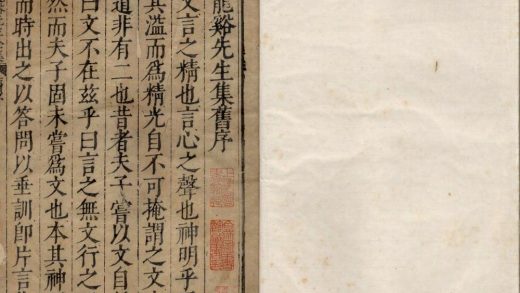 龍谿先生集舊序
文言之精也言心之聲也神明乎
其滋而為精光自不可掩謂之文
道非有二也昔者夫子嘗以文自
曰文不在茲乎曰言之無文行之
然而夫子固未嘗為文也本其神
而時出之以答問以垂訓即片言